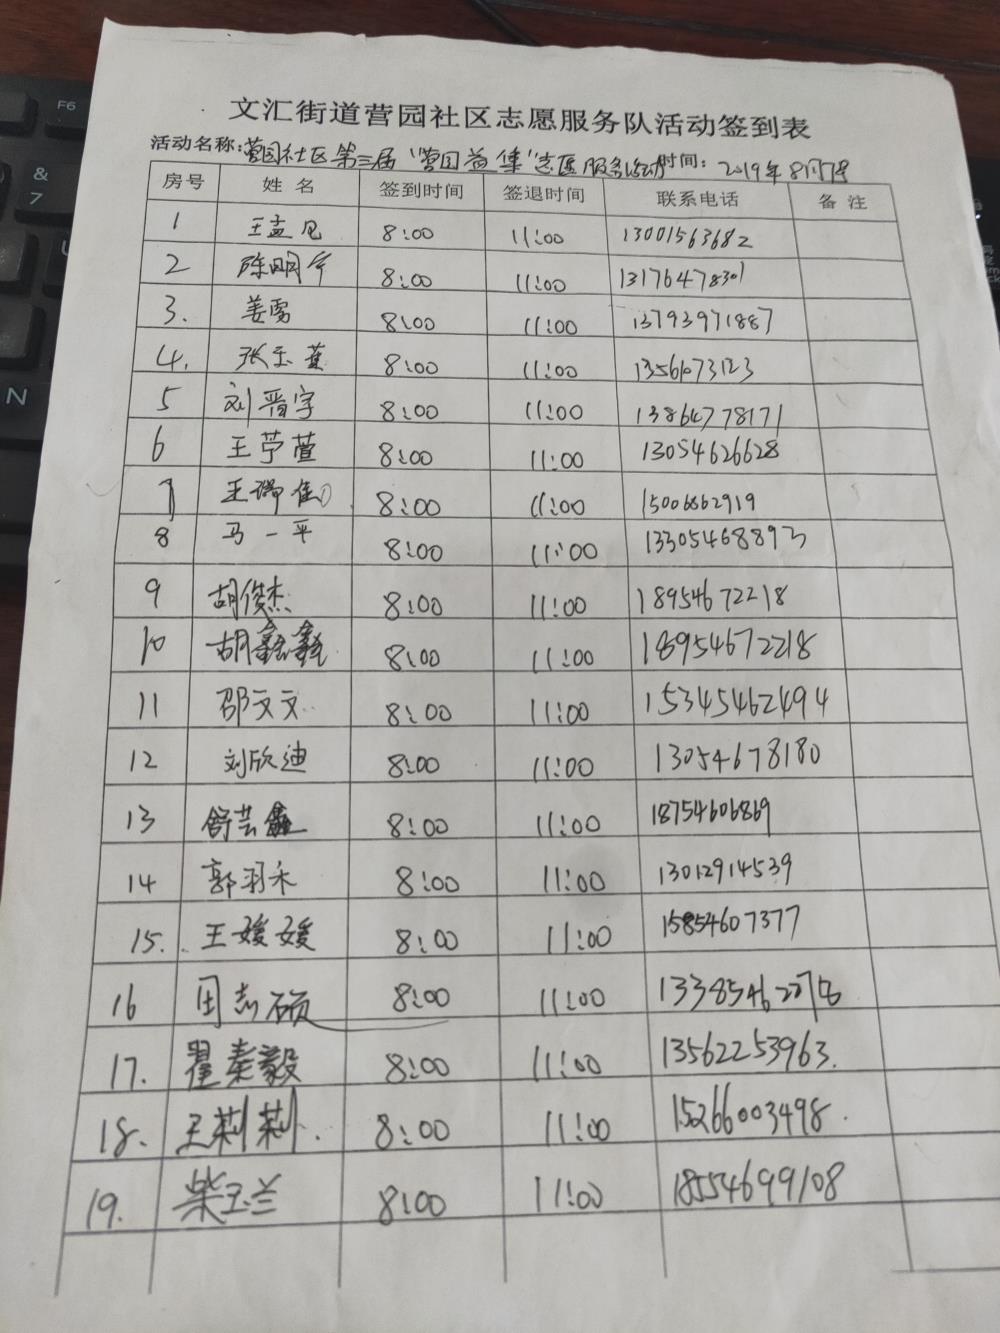 文汇街道营园社区志愿服务队活动签到表
活动名称:营园社区第三届“营园益集”志愿服务活动 时间: 2019年8月17日
房号 姓名 签到时间 签退时间 联系电话 备注
1 王孟 8:00 11:00 13001563682
2 陈明 8:00 11:00 13176478301
3. 姜雪 8:00 11:00 13793971887
4. 张玉 8:00 11:00 13561073123
5 刘晋宇 8:00 11:00 13864778171
6 王苧萱 8:00 11:00 13054626628
7 王瑞佳 8:00 11:00 15006862919
8 马一平 8:00 11:00 13305468893
9 胡俊杰 8:00 11:00 18954672218
10 胡鑫鑫 8:00 11:00 18954672218
11 邵文文 8:00 11:00 15345462494
12 刘欣迪 8:00 11:00 13054678180
13 舒芸鑫 8:00 11:00 18754606869
14 郭羽禾 8:00 11:00 13012914539
15. 王媛媛 8:00 11:00 15854607377
16 周志硕 8:00 11:00
17. 翟秦毅 8:00 11:00 13562253963.
18. 王莉莉. 8:00 11:00 15266003498.
19. 柴玉兰 8:00 11:00 18554699108